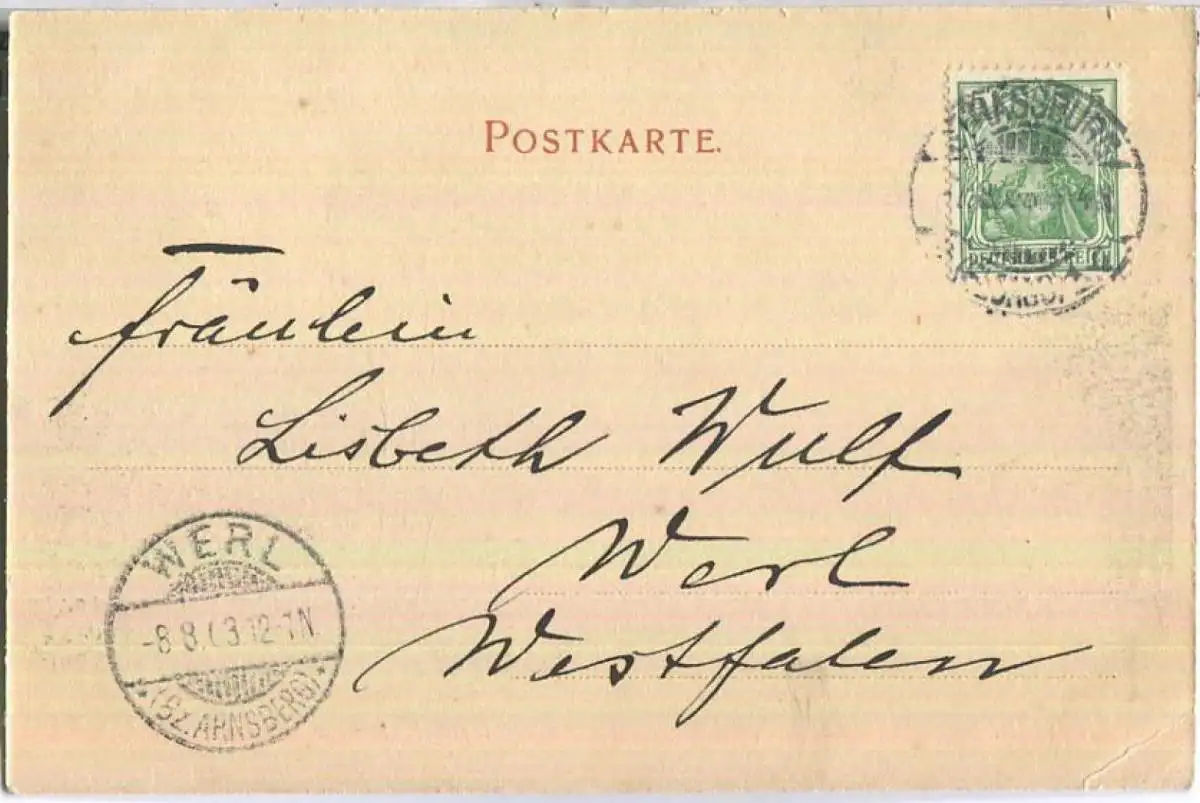 POSTKARTE.
5
DEUTSCHES REICH
Fräulein
Lisbeth Wulf
Werl
Westfalen
WERL
-8.8.03.12-1N.
* (Bz. ARNSBERG) *